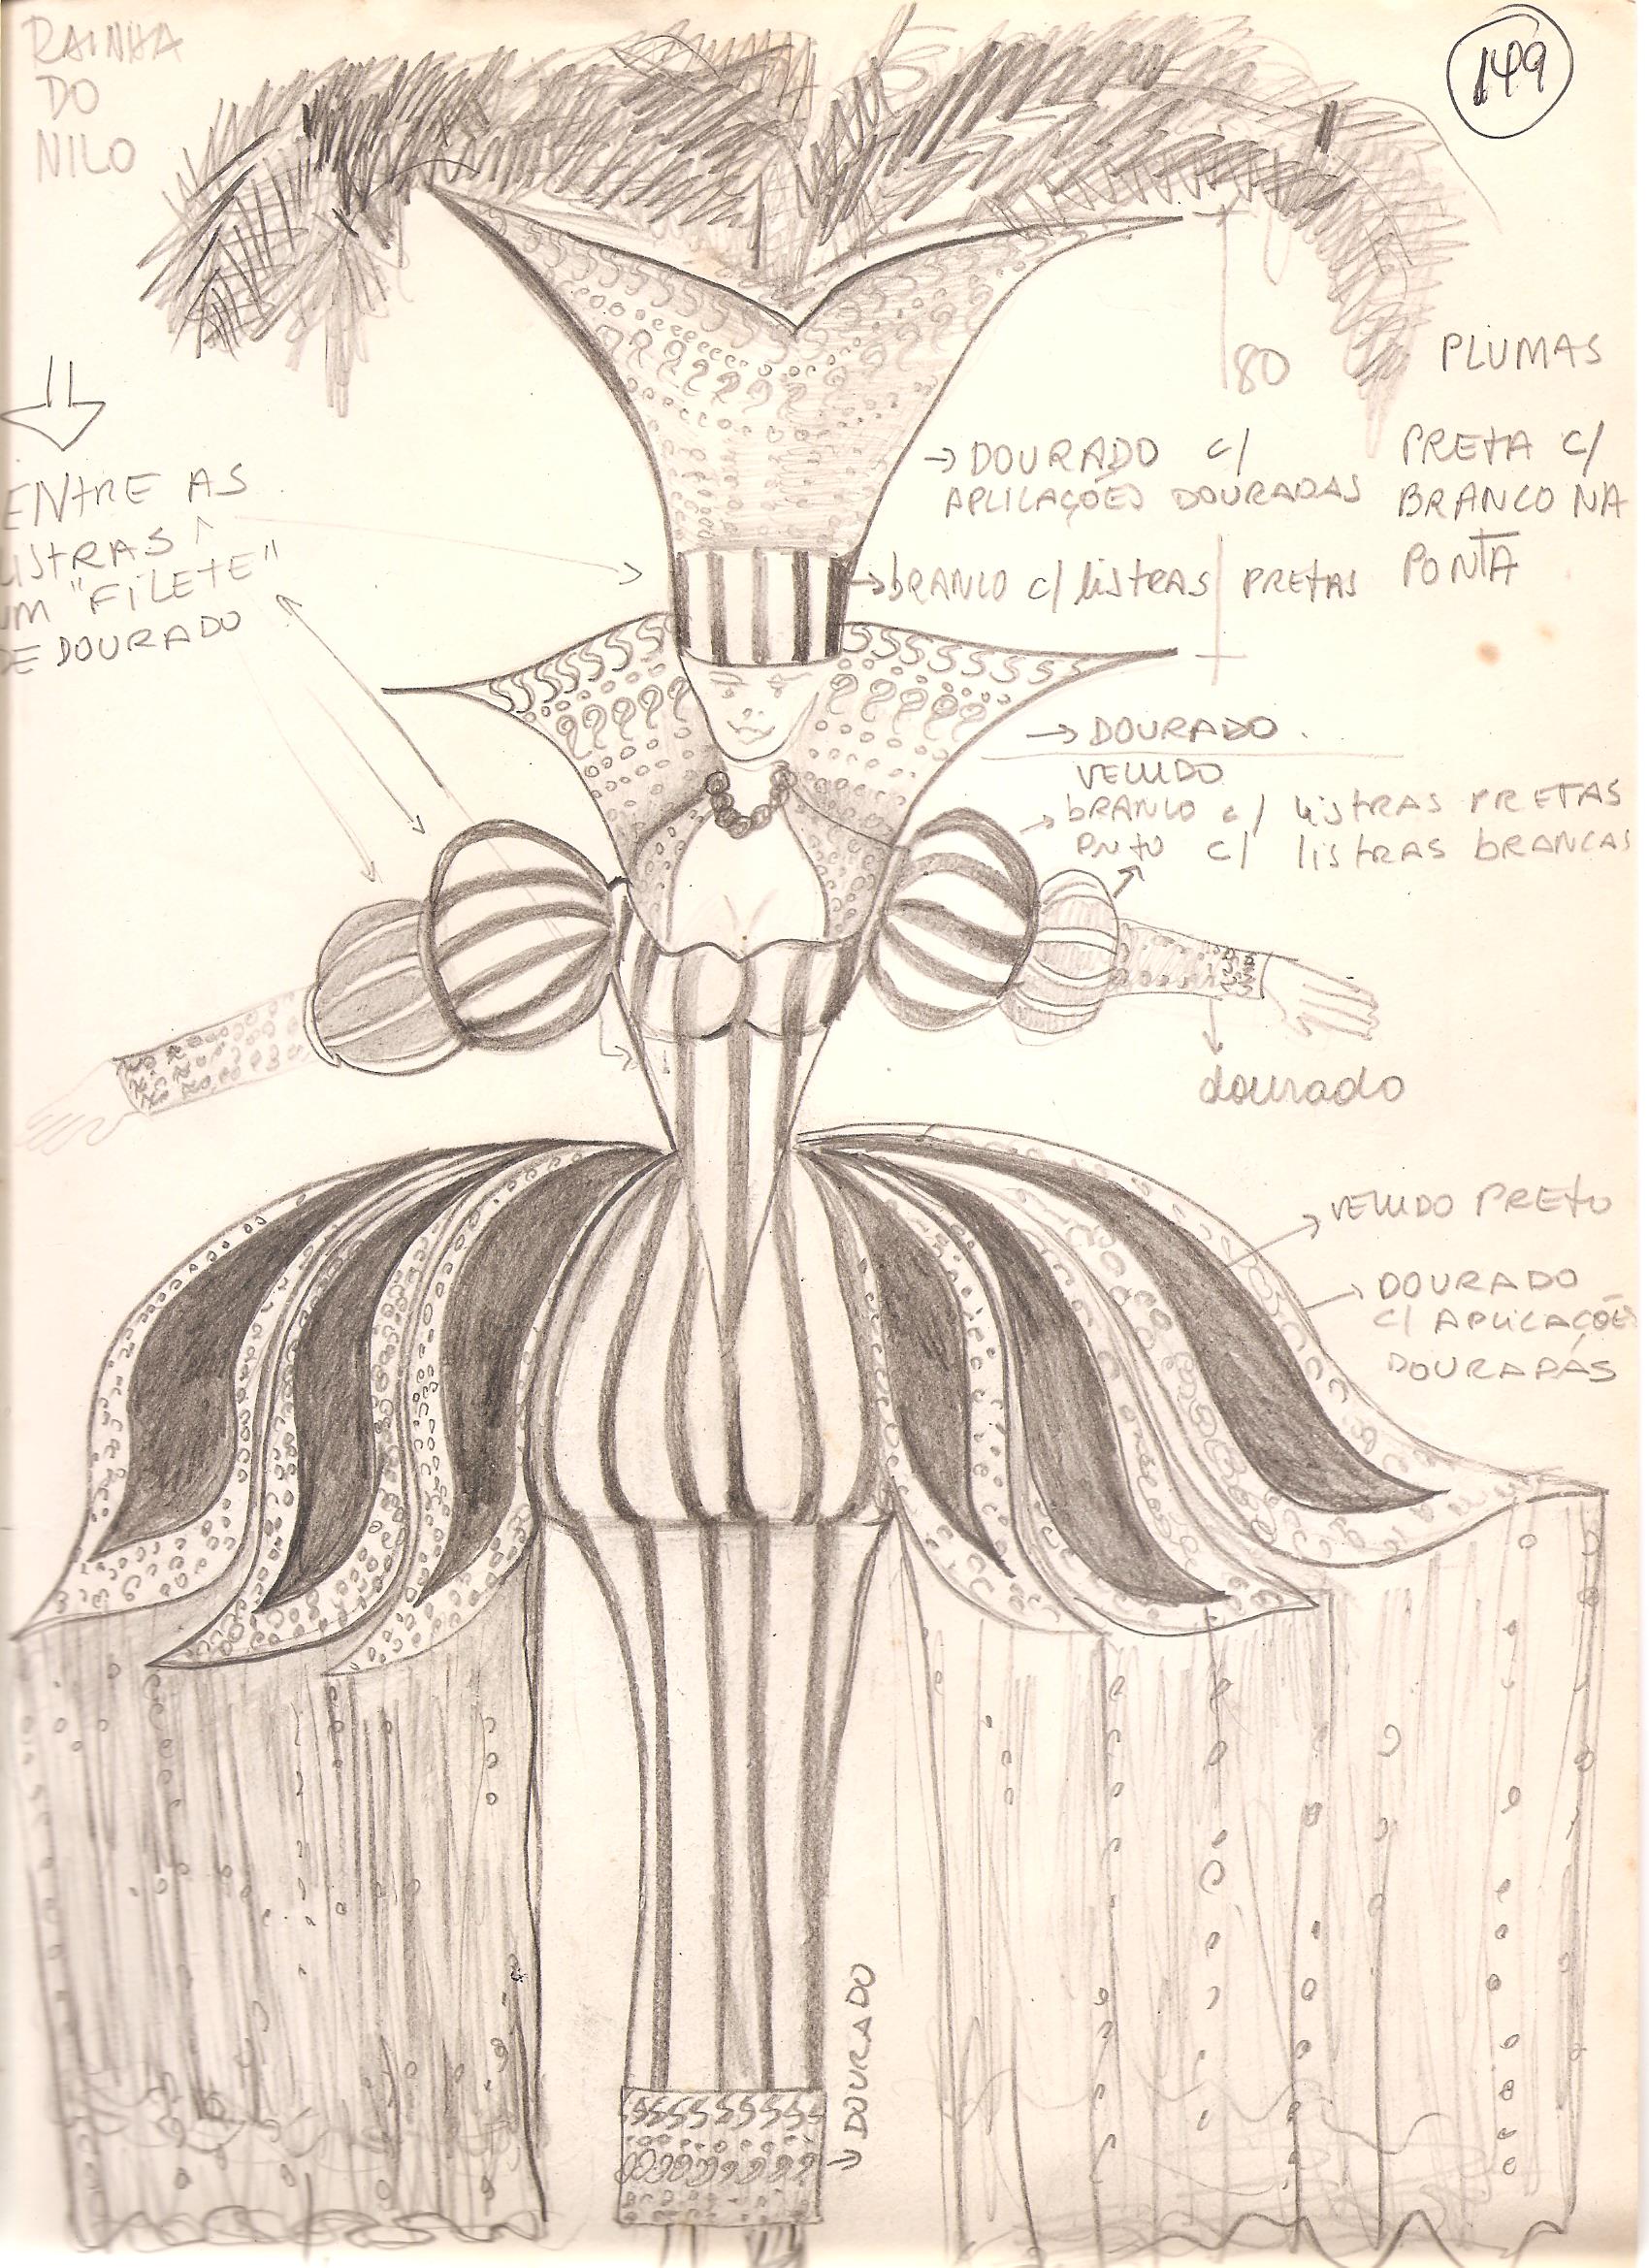 RAINHA
DO
NILO
149
ENTRE AS
LISTRAS
UM "FILETE"
DE DOURADO
80
PLUMAS
PRETA C/
BRANCO NA
PONTA
DOURADO C/
APLICAÇÕES DOURADAS
BRANCO C/ LISTRAS PRETAS
DOURADO
VELUDO
BRANCO C/ LISTRAS PRETAS
PRETO C/ LISTRAS BRANCAS
dourado
VELUDO PRETO
DOURADO
C/ APLICAÇÕES
DOURADAS
DOURADO